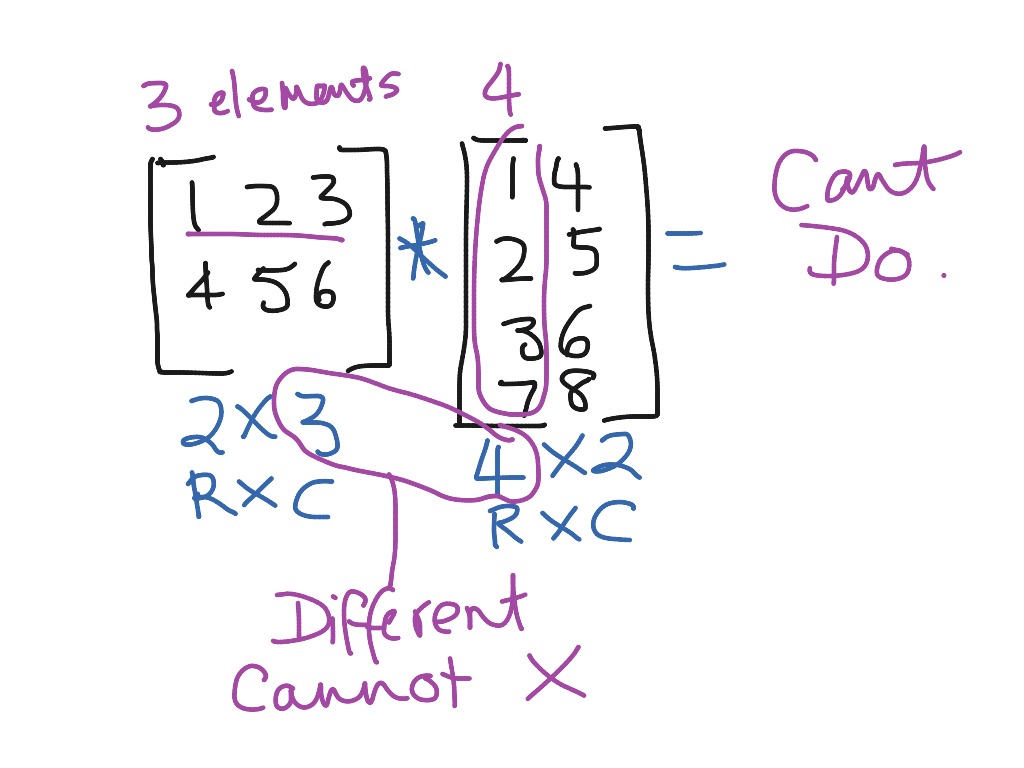 3 elements 4
1 2 3
4 5 6
*
1 4
2 5
3 6
7 8
=
Cant
Do.
2 X 3
R X C
4 X 2
R X C
Different
Cannot X